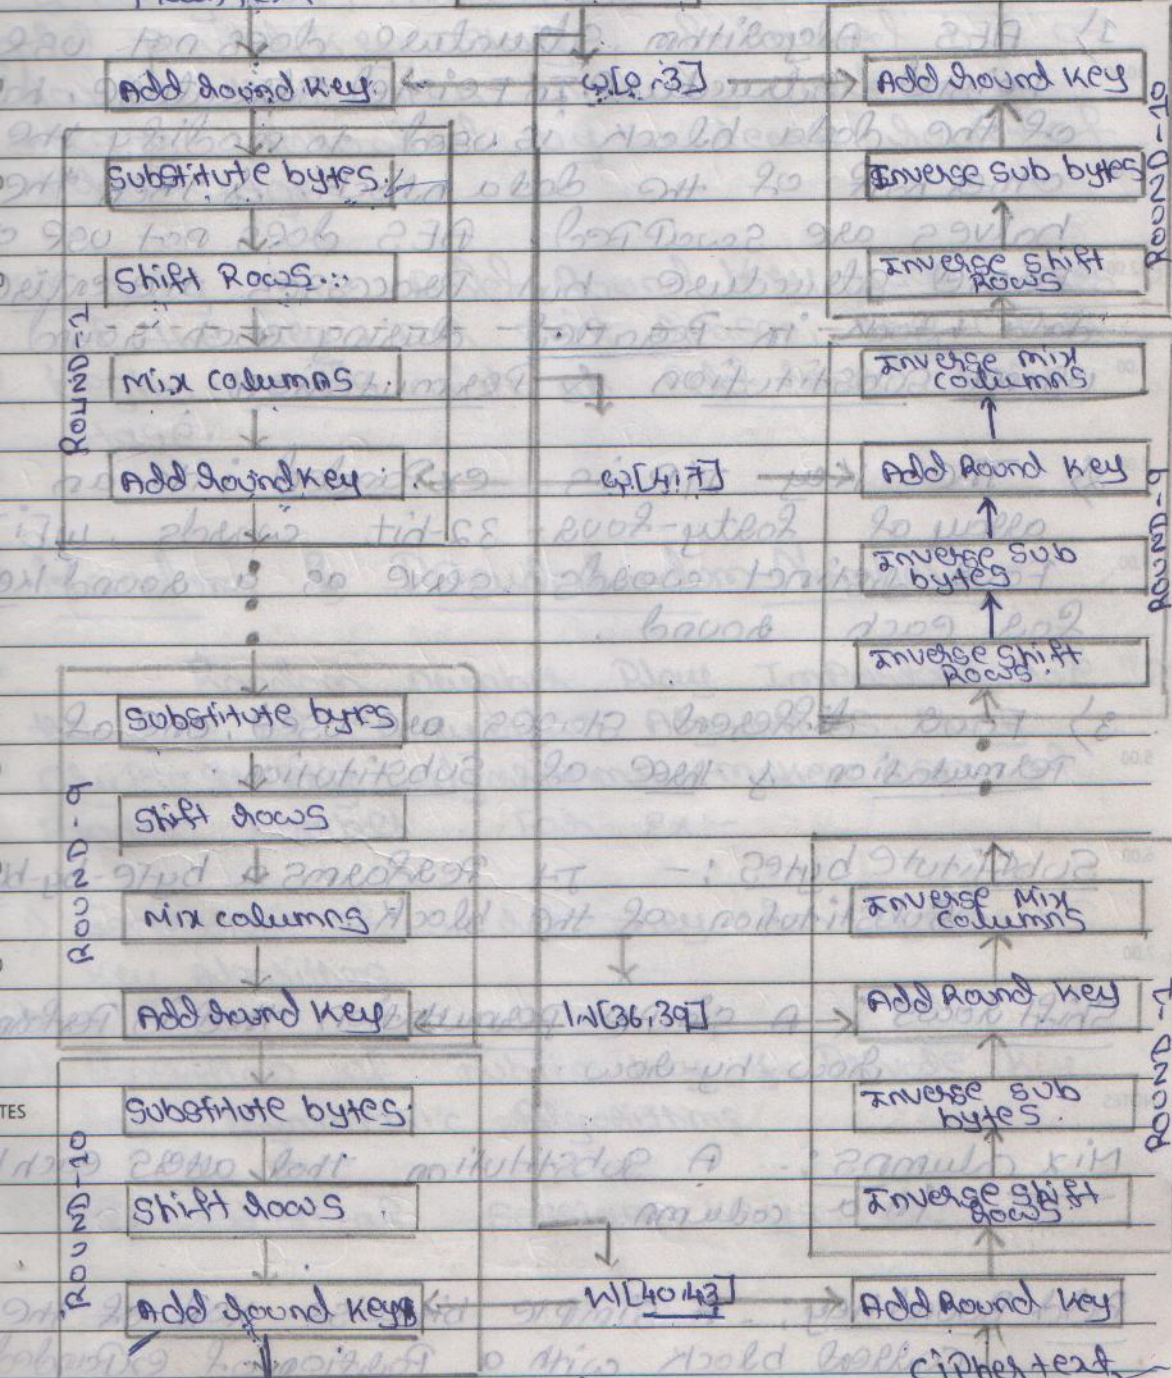 Add Round Key
Substitute bytes
Shift Rows
Mix columns
Add Round Key
ROUND-1
Substitute bytes
Shift rows
Mix columns
Add round Key
ROUND-9
Substitute bytes
Shift rows
Add round Key
ROUND-10
W[0,3]
W[4,7]
W[36,39]
W[40,43]
Add Round Key
Inverse Sub bytes
Inverse Shift
Rows
ROUND-10
Inverse Mix
Columns
Add Round Key
Inverse Sub
bytes
Inverse Shift
Rows
ROUND-9
Inverse Mix
Columns
Add Round Key
Inverse Sub
bytes
Inverse Shift
rows
ROUND-1
Add Round Key
Ciphertext
TES